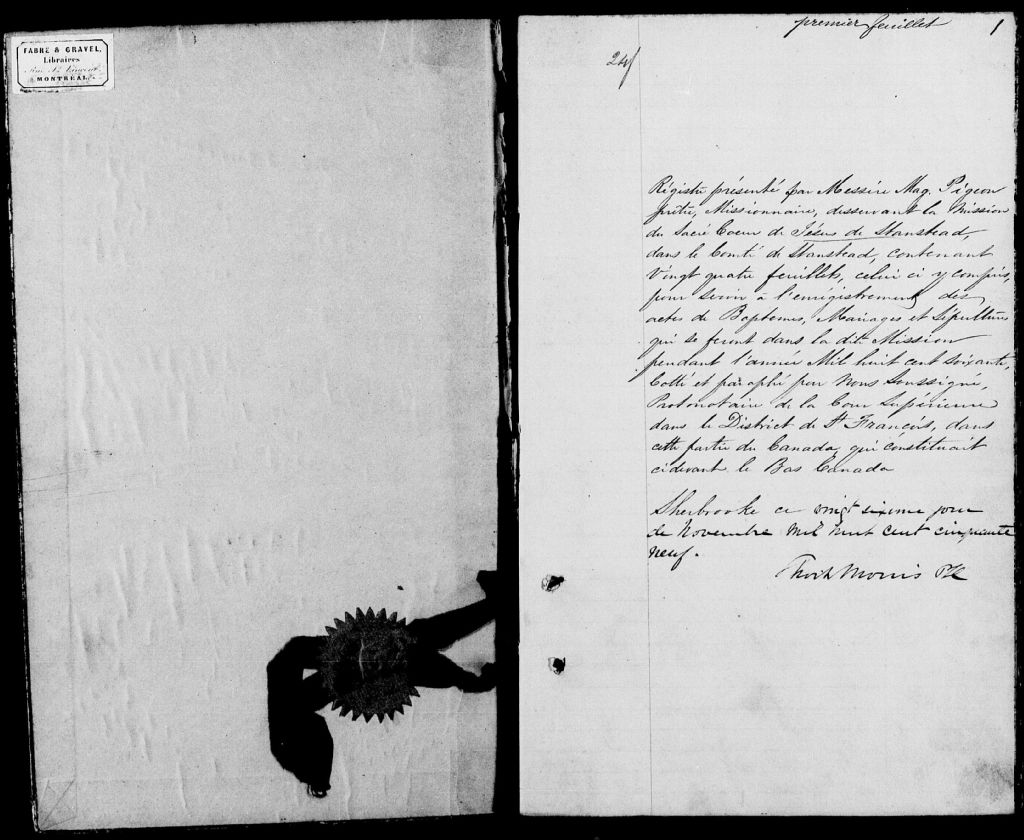 FABRE & GRAVEL,
Libraires
Rue St. Vincent,
MONTREAL
premier feuillet 1
24f
Régistre présenté par Messire Mag. Pigeon
prêtre, Missionnaire, desservant la Mission
du Sacré Coeur de Jésus de Stanstead,
dans le Comté de Stanstead, contenant
Vingt quatre feuillets, celui ci y compris,
pour servir à l'enrégistrement des
actes de Baptêmes, Mariages et Sépultures
qui se feront dans la dite Mission
pendant l'année Mil huit cent soixante,
Cotté et paraphé par Nous Soussigné,
Protonotaire de la Cour Supérieure
dans le District de St François, dans
cette partie du Canada, qui constituait
cidevant le Bas Canada
Sherbrooke ce vingt sixième jour
de Novembre mil huit cent cinquante
neuf.
Morris